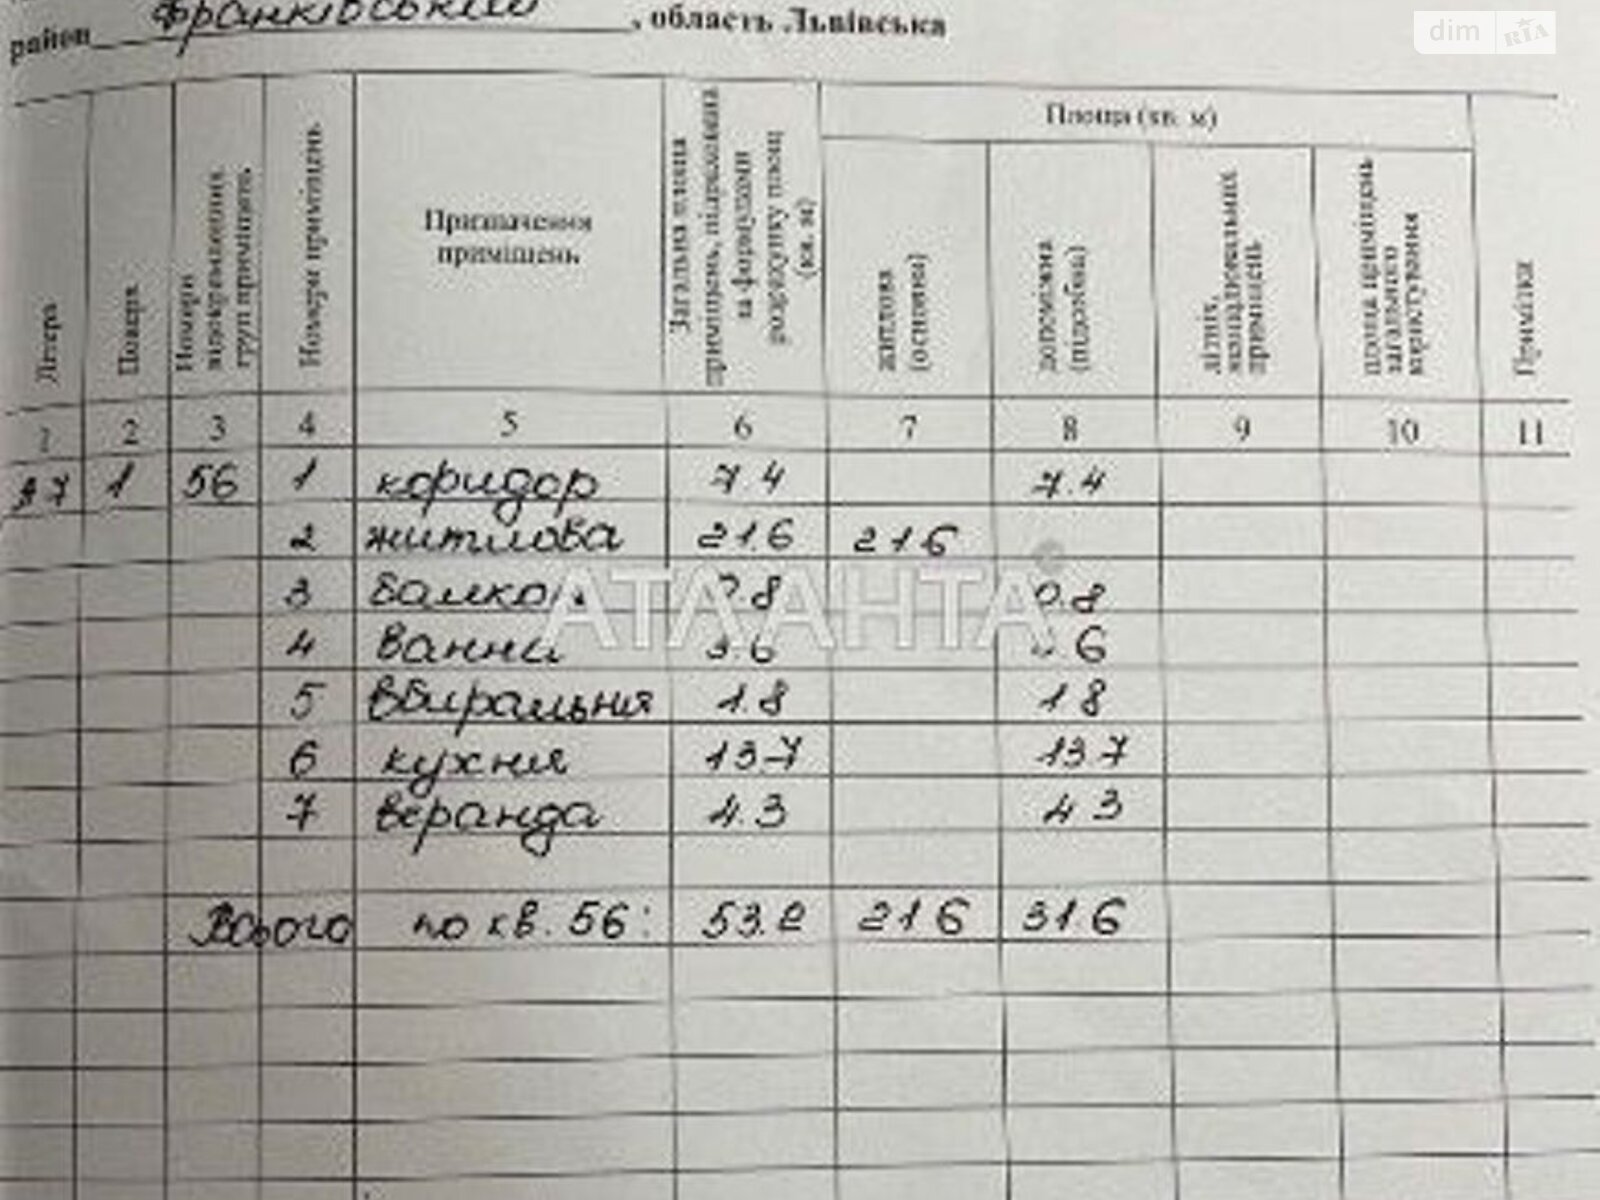 район Франківський, область Львівська
dim RIA
Літера
Поверх
Номери відокремлених груп приміщень
Номери приміщень
Призначення приміщень
Загальна площа приміщень, підрахована за формулами розрахунку площ (кв. м)
Площа (кв. м)
житлова (основна)
допоміжна (підсобна)
літніх, неопалювальних приміщень
площа приміщень загального користування
Примітки
1 2 3 4 5 6 7 8 9 10 11
А7 1 56 1 коридор 7.4 7.4
2 житлова 21.6 21 6
3 балкон 0.8 0.8
4 ванна 3.6 6
5 вбиральня 1.8 1 8
6 кухня 13.7 13 7
7 веранда 4.3 4 3
Всього по кв. 56: 53.2 21 6 31 6
АТЛАНТА